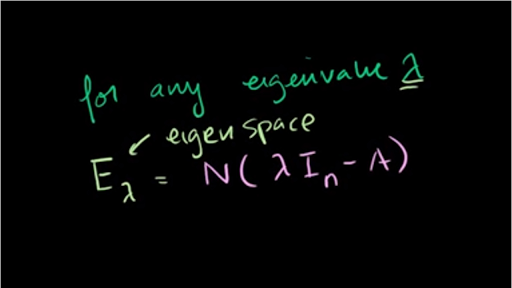 for any eigenvalue λ
eigenspace
E_λ = N( λ I_n - A )